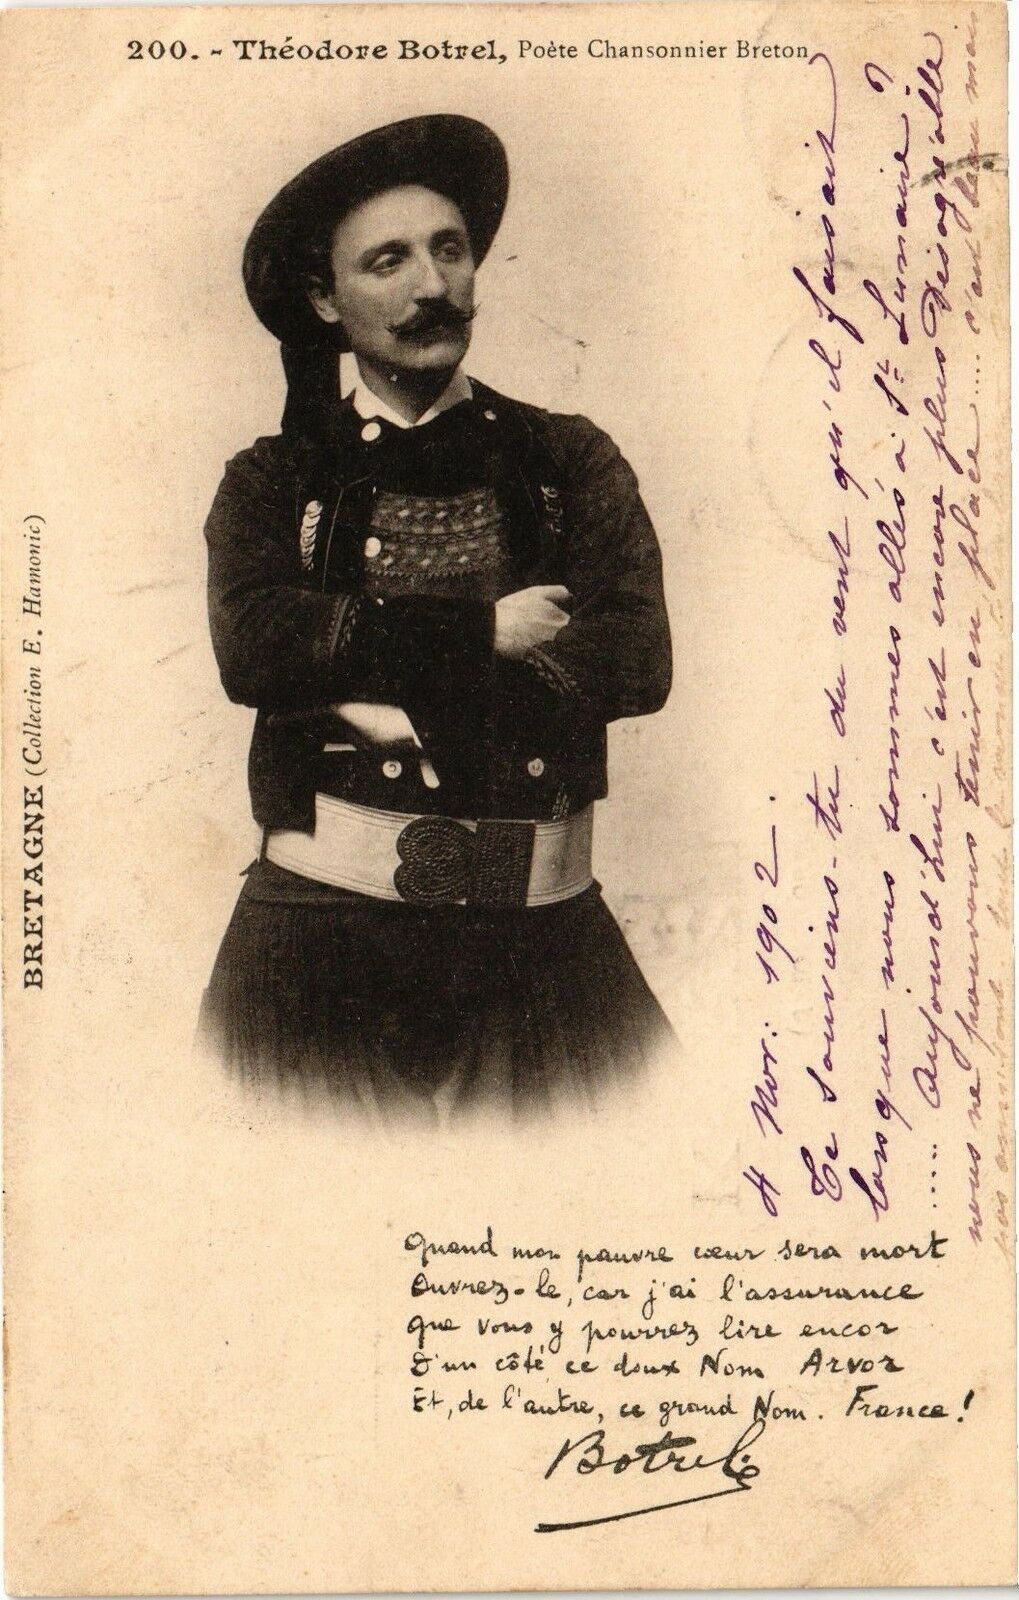 200. - Théodore Botrel, Poète Chansonnier Breton
BRETAGNE (Collection E. Hamonic)
4 Nov: 1902.
Te souviens-tu du vent qu'il faisait
lorsque nous sommes allés à St Lunaire?
..... Aujourd'hui c'est encore plus désagréable
nous ne pouvons tenir en place .... c'est beau mais
Quand mon pauvre cœur sera mort
Ouvrez-le, car j'ai l'assurance
Que vous y pourrez lire encor
D'un côté, ce doux Nom Arvor
Et, de l'autre, ce grand Nom. France!
Botrel